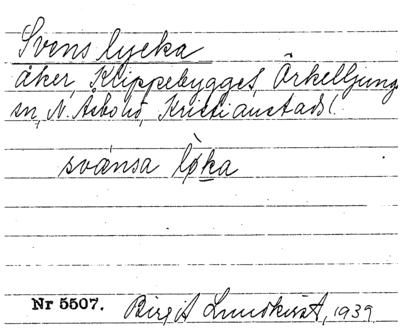 Svens lycka
åker, Klippebygget, Örkelljunga
sn, N. Åsbo hd, Kristianstads l.
svänsa løka
Nr 5507. Birgit Lundkvist, 1939